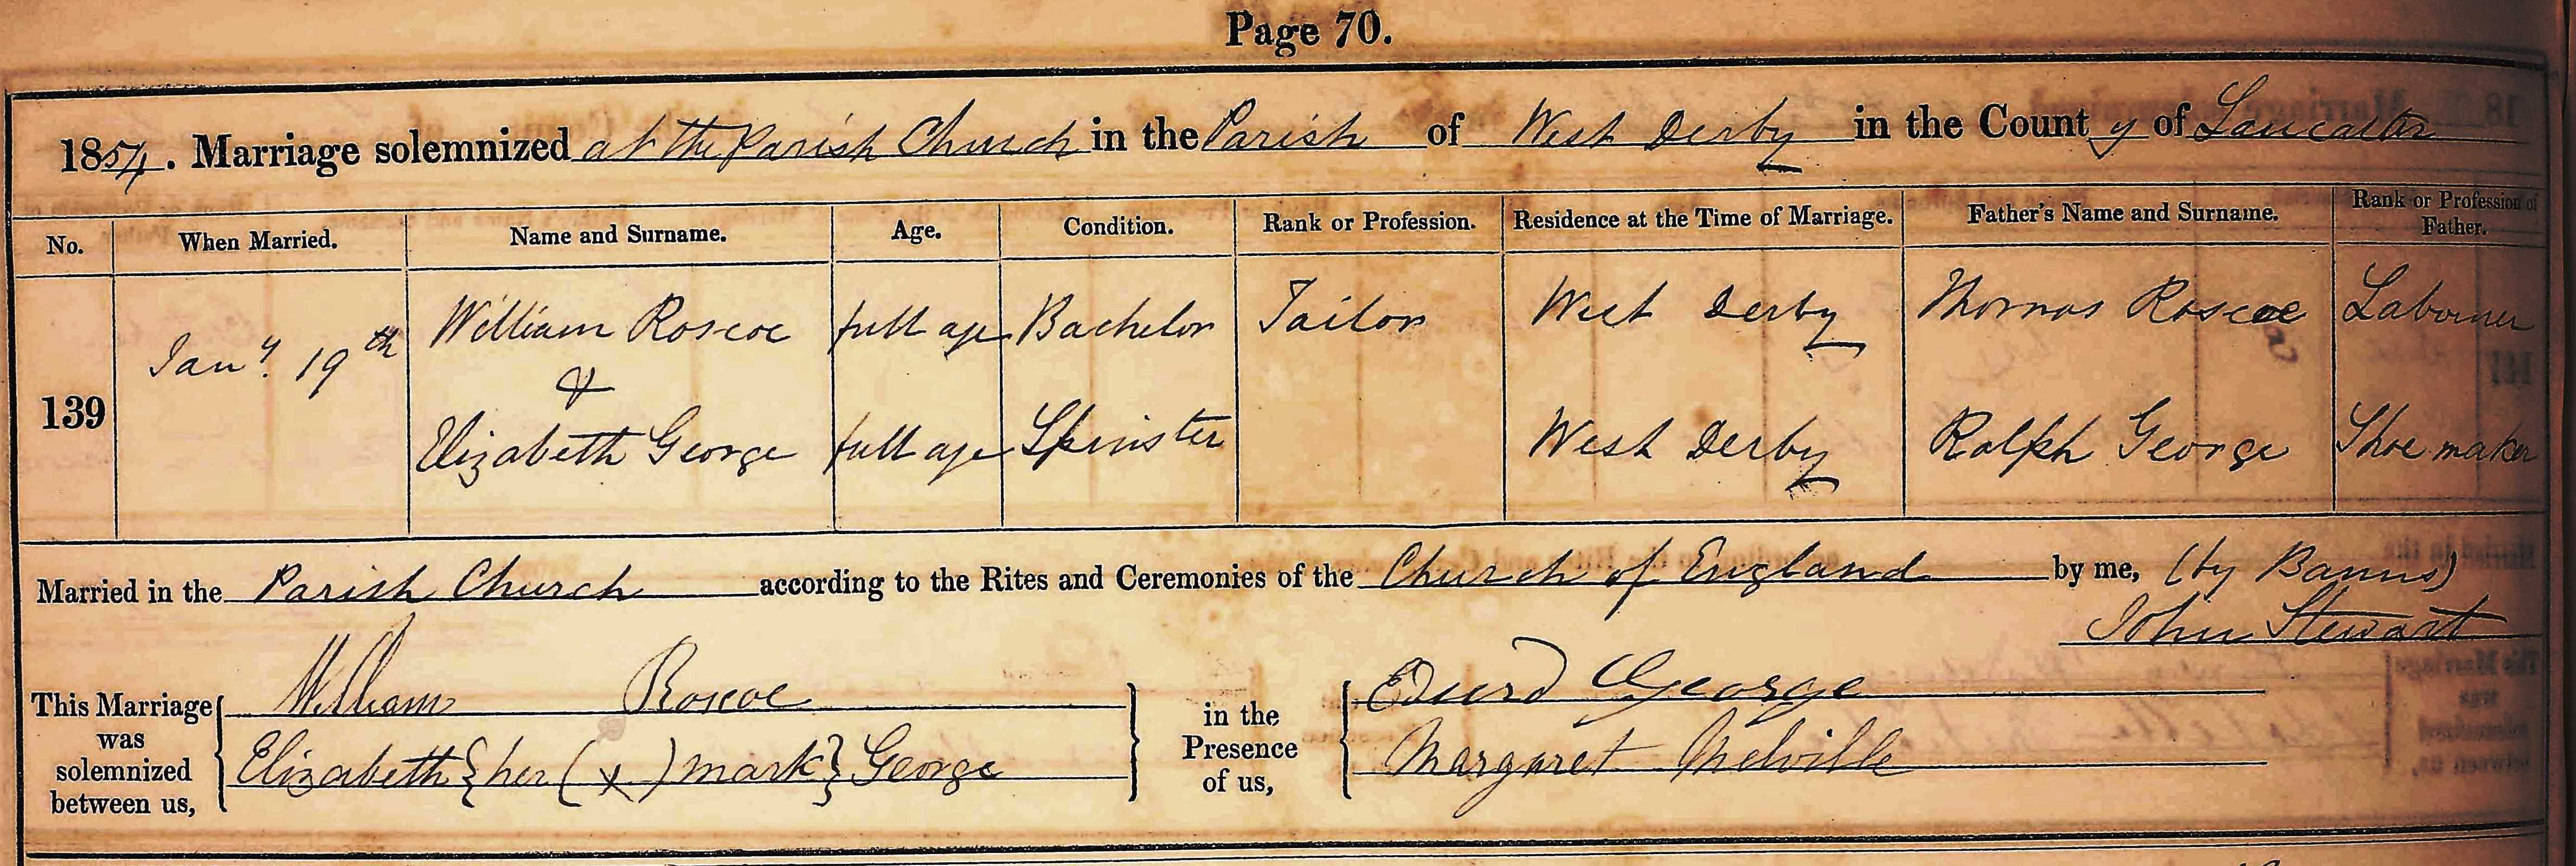 Page 70.
1854. Marriage solemnized at the Parish Church in the Parish of West Derby in the County of Lancaster
No. When Married. Name and Surname. Age. Condition. Rank or Profession. Residence at the Time of Marriage. Father's Name and Surname. Rank or Profession of Father.
139 Jany. 19th William Roscoe full age Bachelor Tailor West Derby Thomas Roscoe Labourer
&
Elizabeth George full age Spinster West Derby Ralph George Shoe maker
Married in the Parish Church according to the Rites and Ceremonies of the Church of England by me, (by Banns)
John Stewart
This Marriage was solemnized between us, William Roscoe
Elizabeth {her (x) mark} George
in the Presence of us, Edward George
Margaret Melville